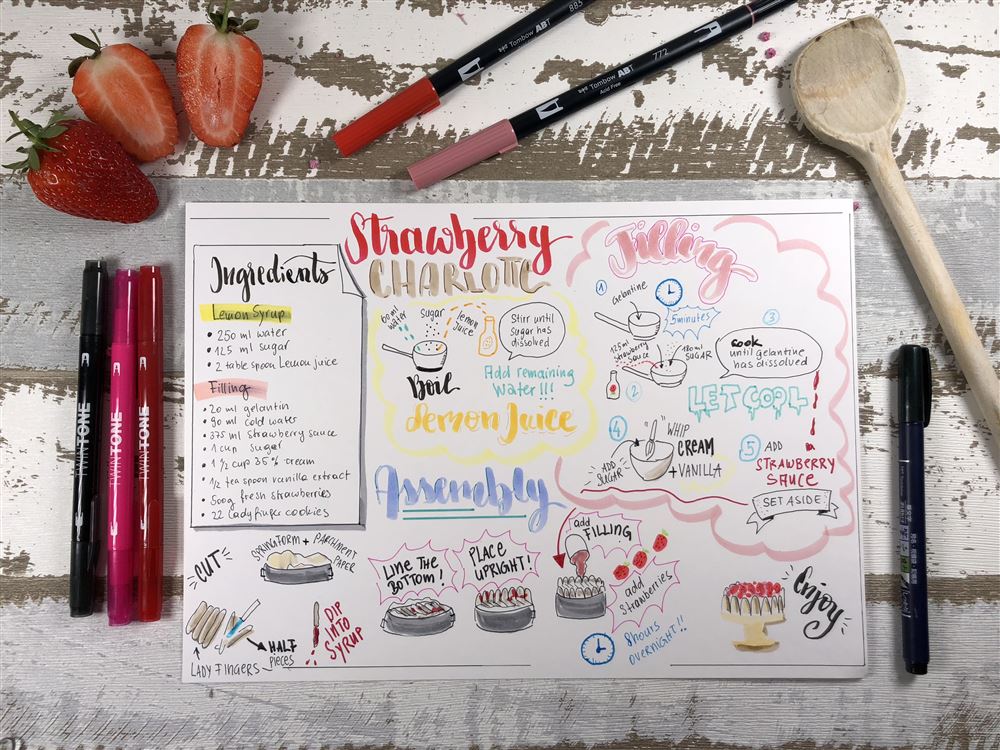 885
Tombow ABT
772
Tombow ABT
Acid Free
TWINTONE
TWINTONE
Strawberry
CHARLOTTE
Ingredients
Lemon Syrup
• 250 ml water
• 125 ml sugar
• 2 table spoon Lemon juice
Filling
• 20 ml gelantin
• 90 ml cold water
• 375 ml Strawberry sauce
• 1 cup sugar
• 1 1/2 cup 35% cream
• 1/2 tea spoon vanilla extract
• 500g fresh strawberries
• 22 Ladyfinger cookies
water
Sugar
lemon
juice
Stirr until
sugar has
dissolved
Boil
Add remaining
Water!!!
Lemon Juice
Filling
1
Gelantine
5minutes
125ml
Strawberry
sauce
180ml
SUGAR
2
3
cook
until gelantine
has dissolved
LET COOL
4
ADD
SUGAR
WHIP
CREAM
+ VANILLA
5 ADD
STRAWBERRY
SAUCE
SET ASIDE
Assembly
CUT
SPRINGFORM + PARCHMENT
PAPER
LADY FINGERS
HALF
PIECES
DIP
INTO
SYRUP
LINE THE
BOTTOM!
PLACE
UPRIGHT!
add
FILLING
add
strawberries
8hours
OVERNIGHT!!
Enjoy